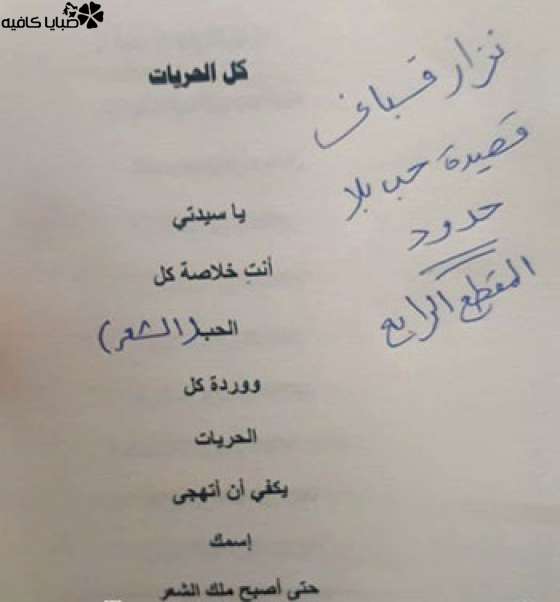 صبايا كافيه
كل الحريات
نزار قباني
قصيدة حب بلا
حدود
المقطع الرابع
يا سيدتي
أنتِ خلاصة كل
الحب (الشعر)
ووردة كل
الحريات
يكفي أن أتهجى
إسمك
حتى أصبح ملك الشعر